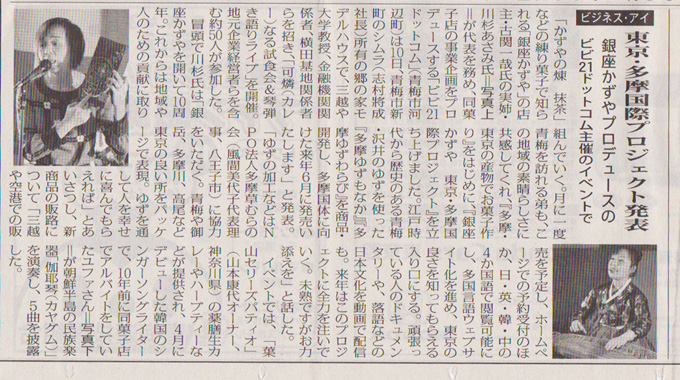 ビジネス・アイ
東京・多摩国際プロジェクト発表
銀座かずやプロデュースの
ビビ21ドットコム主催のイベントで
「かずやの煉 抹茶」
などの練り菓子で知ら
れる「銀座かずや」の店
主・古関一哉氏の実姉、
川杉あさみ氏=写真上
=が代表を務め、同菓
子店の事業企画をプロ
デュースする「ビビ21
ドットコム」(青梅市河
辺町)は10日、青梅市新
町のシムラ(志村将成
社長)所有の郷の家モ
デルハウスで、三越や
大学教授、金融機関関
係者、横田基地関係者
らを招き、「可燐(カレ
ン)なる試食会&琴弾
き語りライブ」を開催。
地元企業経営者らを含
む約50人が参加した。
冒頭で川杉氏は「銀
座かずやを開いて10周
年。これからは地域や
人のための貢献に取り
組んでいく。月に一度
青梅を訪れる弟も、こ
の地域の素晴らしさに
共感してくれ『多摩・
東京の産物でお菓子作
り』をはじめに、『銀座
かずや 東京・多摩国
際プロジェクト』を立
ち上げました。江戸時
代から歴史のある青梅
・沢井のゆずを使った
『多摩ゆずもなか』『多
摩ゆずわらび』を商品・
開発し、多摩国体に向
けた来年6月に発売い
たします」と発表。
「ゆずの加工などはN
PO法人多摩草むらの
会(風間美代子代表理
事、八王子市)に協力
をいただく。青梅や御
岳、多摩川、高尾など
東京の良い所をパッケ
ージで表現。ゆずを通
して人を幸せ
に喜んでもら
えれば」とあ
いさつし、新
商品の販路に
ついて「三越
や空港での販
売を予定し、ホームペ
ージでの予約受付のほ
か、日・英・韓・中の
4か国語で閲覧可能に
し、多国言語ウェブサ
イト化を進め、東京の
良さを知ってもらえる
入り口にする。頑張っ
ている人のドキュメン
タリーや、落語などの
日本文化を動画で配信
も。来年はこのプロジ
ェクトに全力を注いで
いく。未熟ですがお力
添えを」と話した。
イベントでは、「葉
山エリーズパティオ」
(山本康代オーナー、
神奈川県)の薬膳生カ
レーやハーブティーな
どが提供され、4月に
デビューした韓国のシ
ンガーソングライター
で、10年前に同菓子店
でアルバイトをしてい
たユファさん=写真下
=が朝鮮半島の民族楽
器「伽耶琴(カヤグム)」
を演奏し、5曲を披露
した。